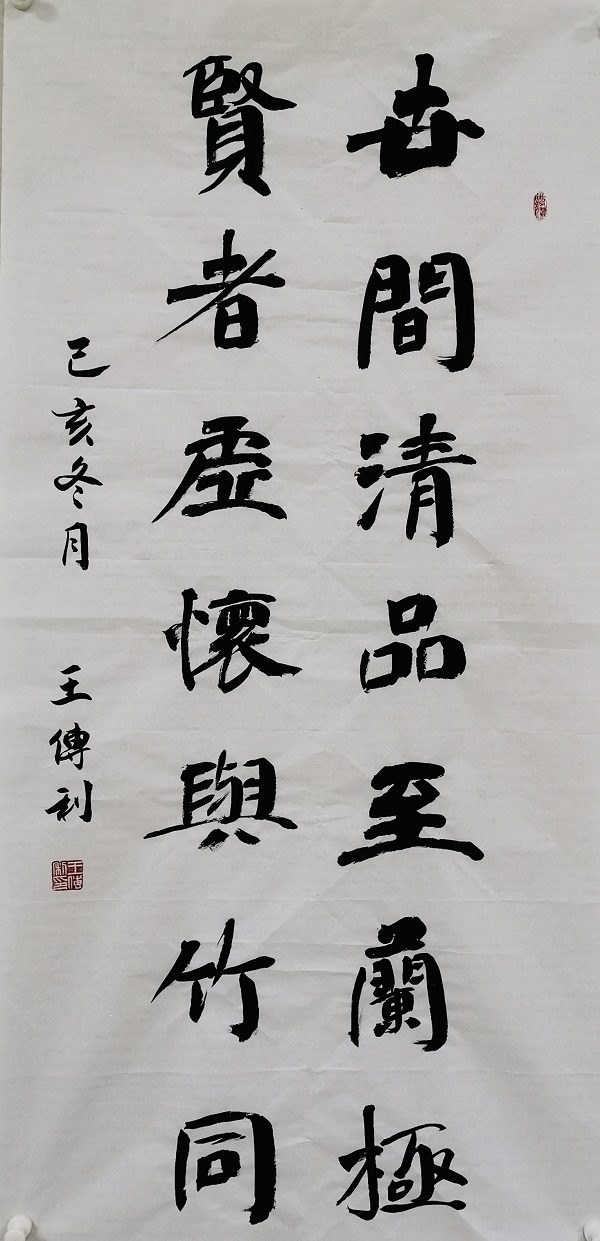 世間清品至蘭極
賢者虛懷與竹同
己亥冬月 王傳利